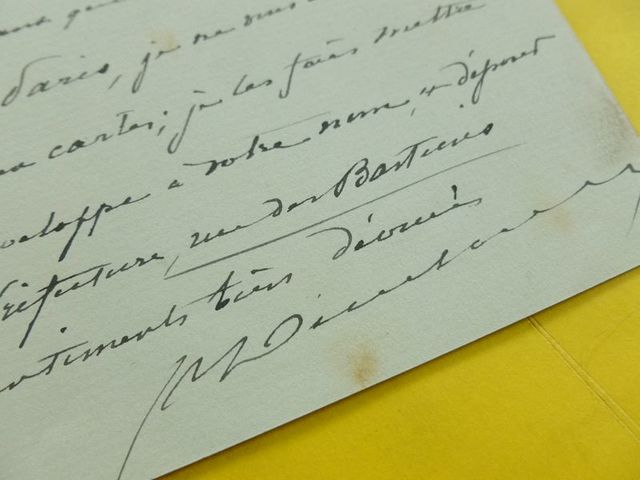 Paris, je ne vous
cartes; je les fais mettre
enveloppe à votre nom, & déposer
Préfecture, rue des Bastions
sentiments très dévoués